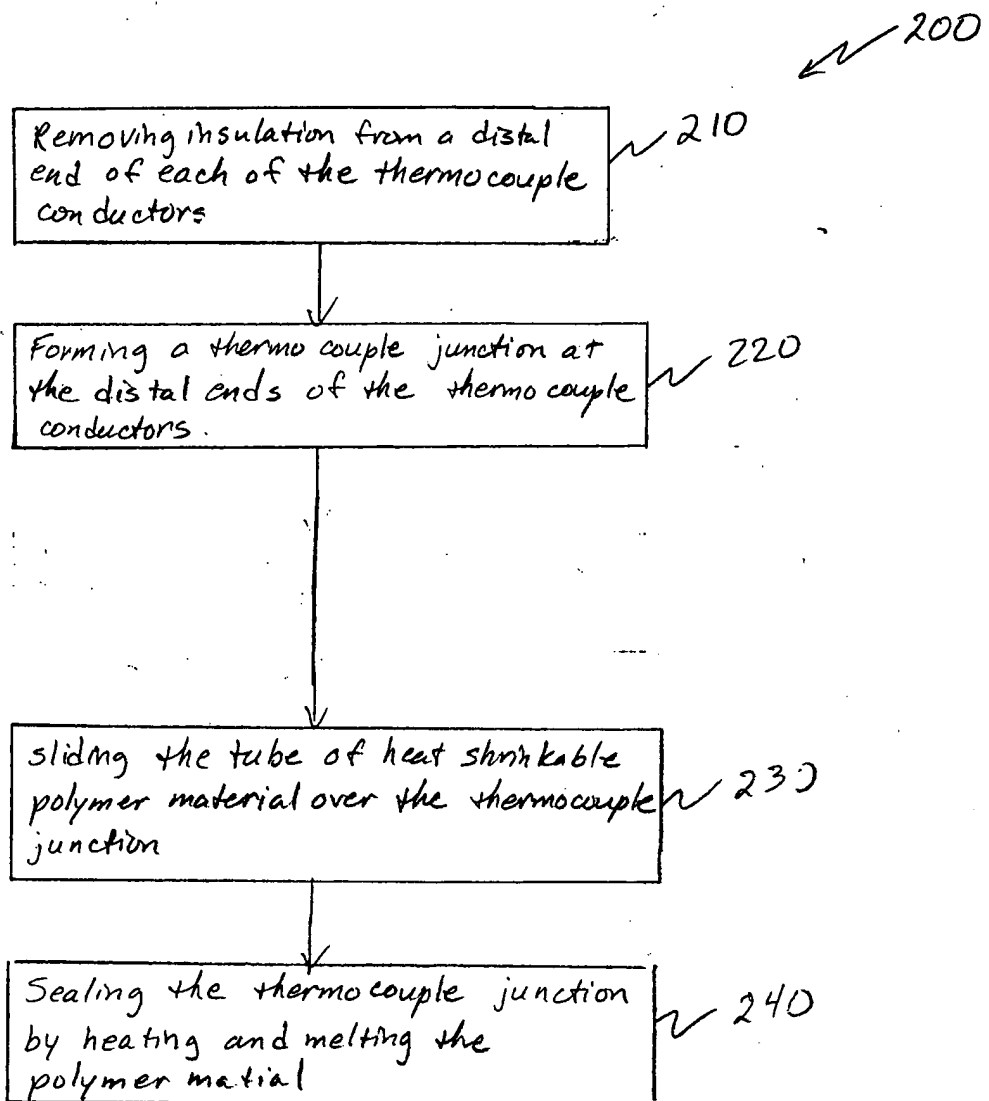 200
Removing insulation from a distal
end of each of the thermocouple
conductors
210
Forming a thermo couple junction at
the distal ends of the thermo couple
conductors.
220
sliding the tube of heat shrinkable
polymer material over the thermocouple
junction
230
Sealing the thermo couple junction
by heating and melting the
polymer matial
240